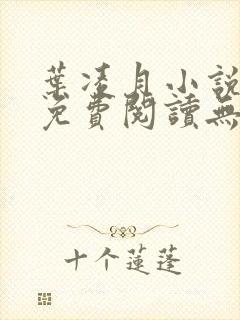 葉凌月小說
免費閱讀無
十个蓮蓬